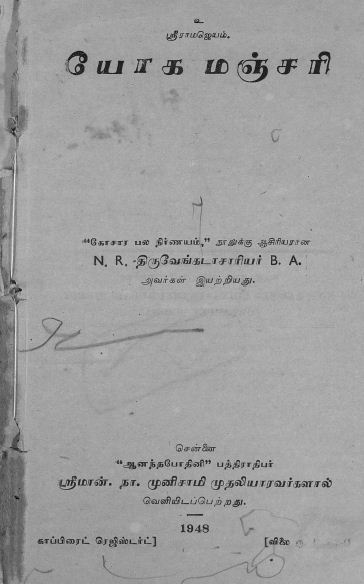 உ
ஸ்ரீராமஜெயம்.
யோக மஞ்சரி
"கோசார பல நிர்ணயம்," நூலுக்கு ஆசிரியரான
N. R. திருவேங்கடாசாரியர் B. A.
அவர்கள் இயற்றியது.
சென்னை
"ஆனந்தபோதினி" பத்திராதிபர்
ஸ்ரீமான். நா. முனிசாமி முதலியாரவர்களால்
வெளியிடப்பெற்றது.
1948
காப்பிரைட் ரெஜிஸ்டர்ட்] [விலை